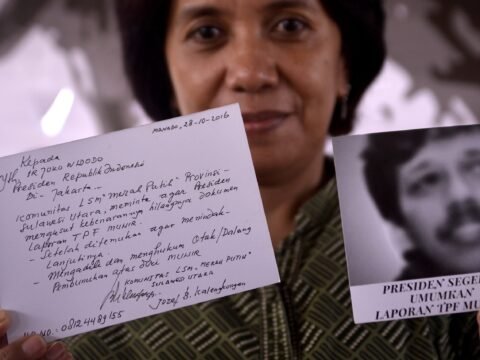 Manado, 28-10-2016
Kepada
Yth, IR JOKO WIDODO
Presiden Republik Indonesia
Di - Jakarta -
Komunitas LSM, Merah Putih Provinsi
Sulawesi Utara, meminta agar Presiden
mengusut kebenarannya hilangnya Dokumen
Laporan TPF MUNIR.
- Setelah ditemukan agar menindak-
Lanjutinya.
- Mengadili dan menghukum Otak/Dalang
Pembunuhan atas MUNIR
Komunitas LSM, Merah Putih
Sulawesi Utara
Josef B.
HP NO. 08124489155
PRESIDEN SEGE
UMUMKAN
LAPORAN TPF MU